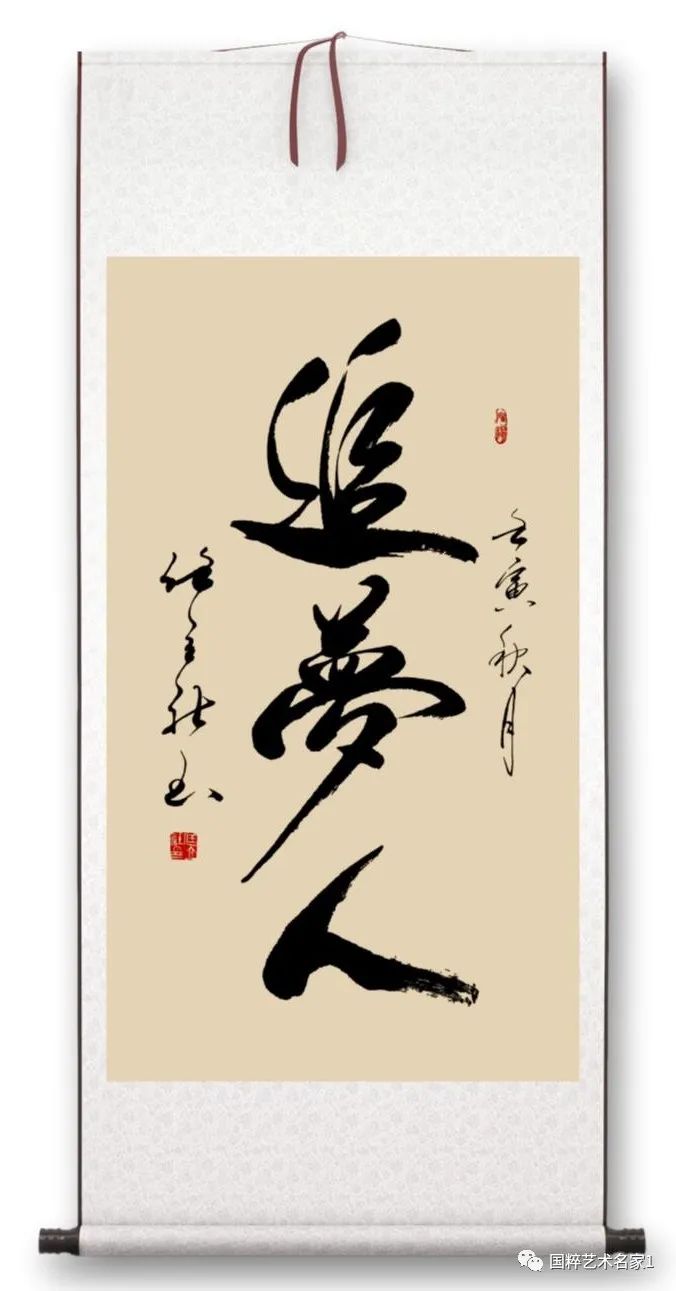 壬寅秋月
追夢人
国粹艺术名家1